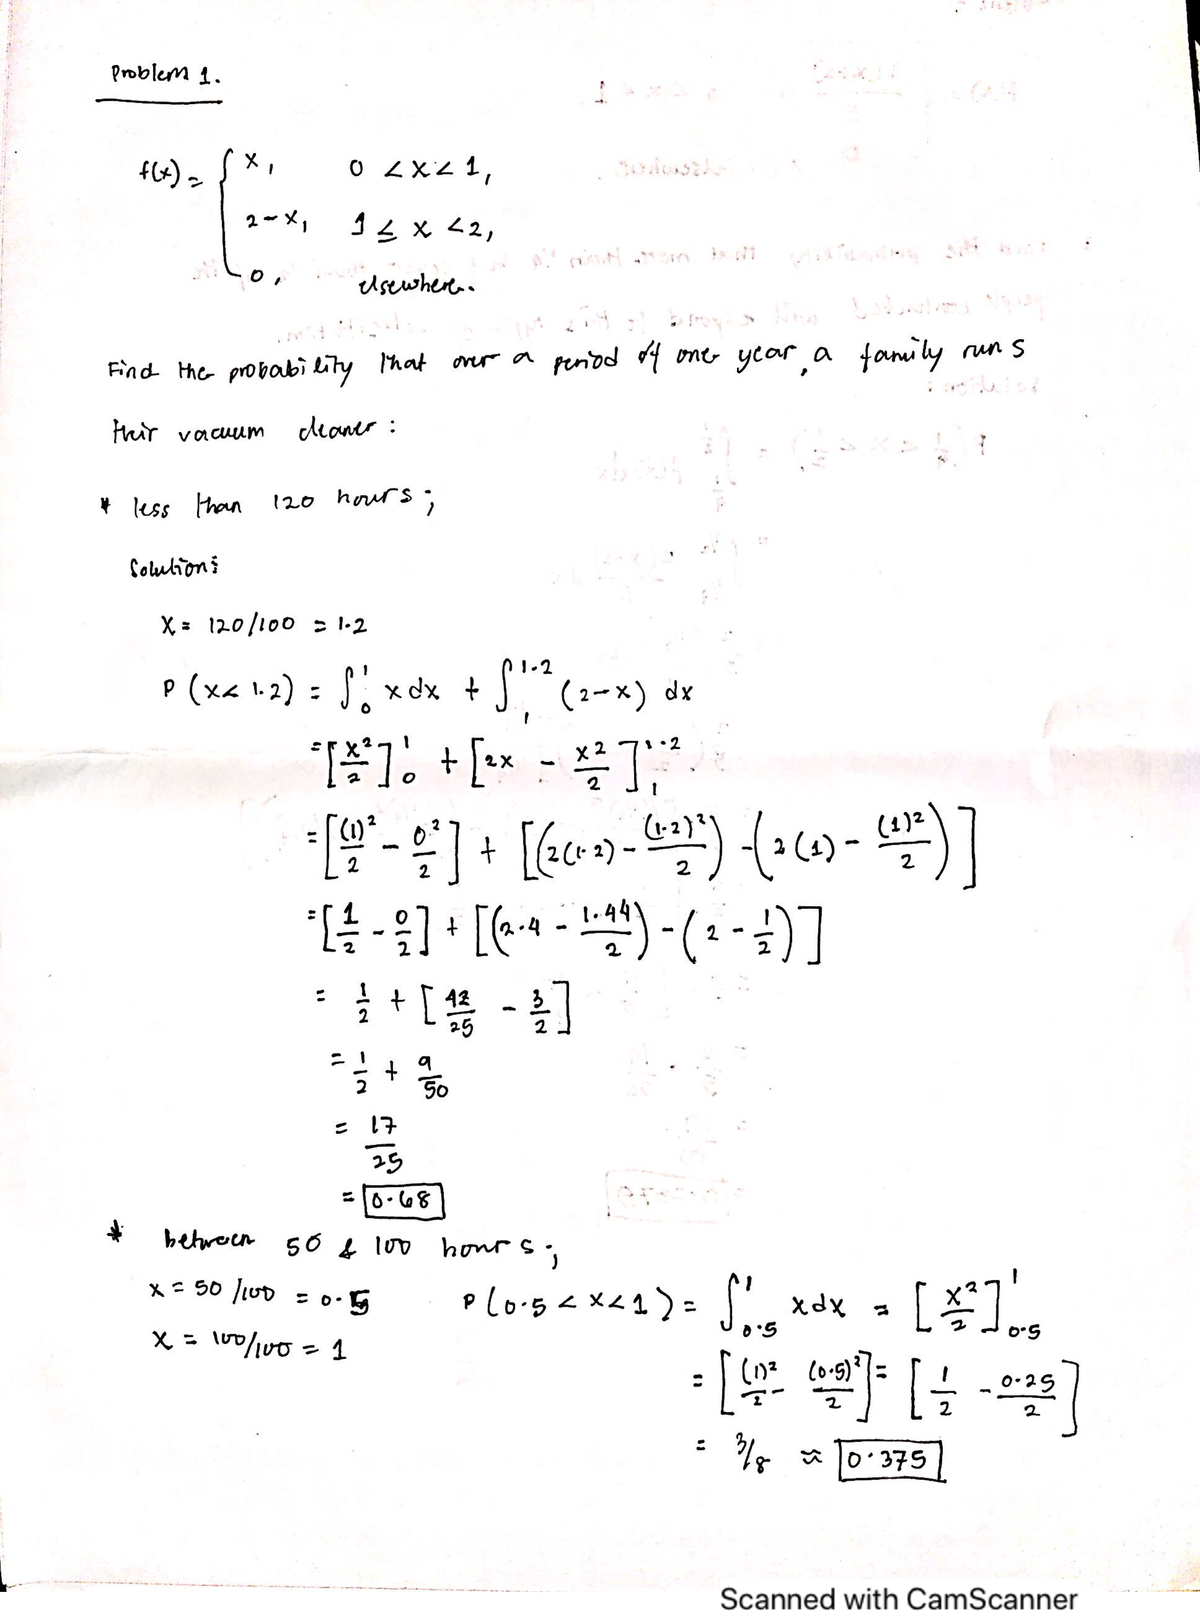 Problem 1.
f(x) = { x, 0 < x < 1,
2-x, 1 ≤ x < 2,
0, elsewhere.
Find the probability that over a period of one year, a family runs
their vacuum cleaner :
* less than 120 hours;
Solution:
X = 120/100 = 1.2
P (x < 1.2) = ∫₀¹ x dx + ∫₁^1.2 (2-x) dx
= [x²/2]₀¹ + [2x - x²/2]₁^1.2
= [(1)²/2 - 0²/2] + [(2(1.2) - (1.2)²/2) - (2(1) - (1)²/2)]
= [1/2 - 0/2] + [(2.4 - 1.44/2) - (2 - 1/2)]
= 1/2 + [42/25 - 3/2]
= 1/2 + 9/50
= 17/25
= 0.68
* between 50 & 100 hours;
x = 50/100 = 0.5 P(0.5 < x < 1) = ∫₀.₅¹ x dx = [x²/2]₀.₅¹
x = 100/100 = 1
= [(1)²/2 - (0.5)²/2] = [1/2 - 0.25/2]
= 3/8 ≈ 0.375
Scanned with CamScanner